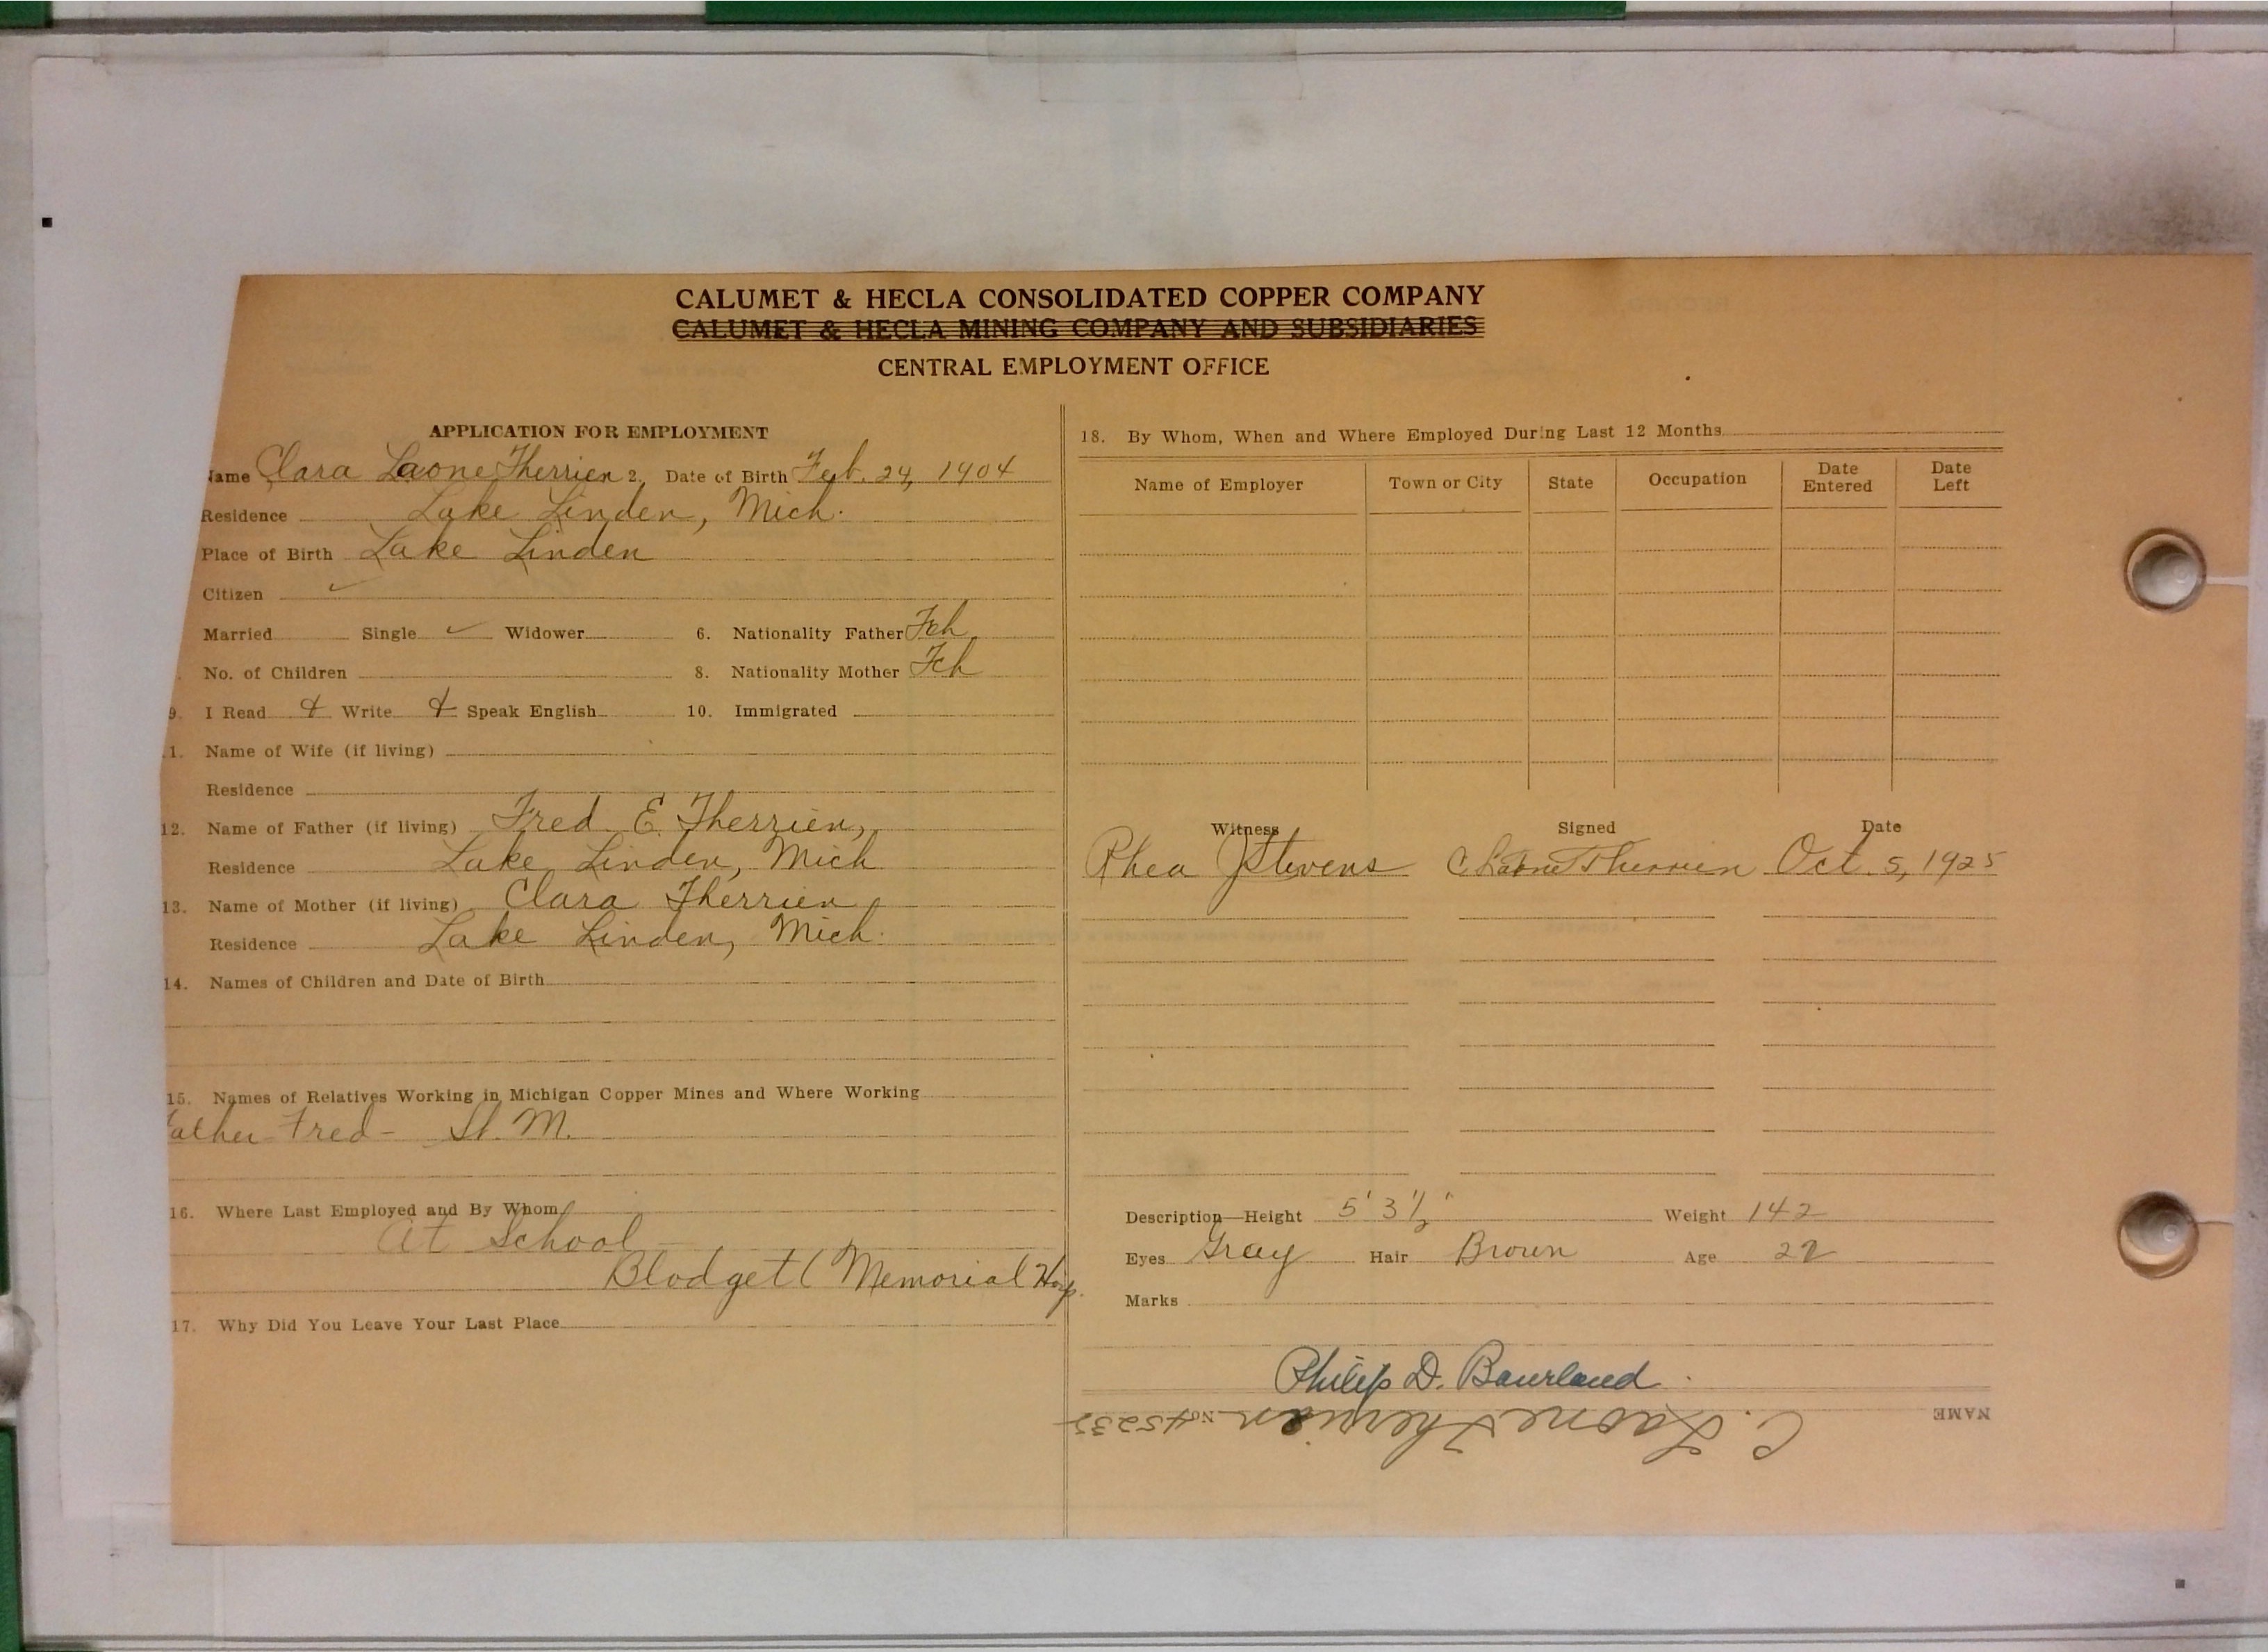 CALUMET & HECLA CONSOLIDATED COPPER COMPANY
CALUMET & HECLA MINING COMPANY AND SUBSIDIARIES
CENTRAL EMPLOYMENT OFFICE
APPLICATION FOR EMPLOYMENT
Name Clara Laone Therrien 2. Date of Birth Feb. 24, 1904
Residence Lake Linden, Mich.
Place of Birth Lake Linden
Citizen ✓
Married Single ✓ Widower 6. Nationality Father Fch
No. of Children 8. Nationality Mother Fch
9. I Read & Write & Speak English 10. Immigrated
1. Name of Wife (if living)
Residence
12. Name of Father (if living) Fred E. Therrien,
Residence Lake Linden, Mich
13. Name of Mother (if living) Clara Therrien
Residence Lake Linden, Mich.
14. Names of Children and Date of Birth
15. Names of Relatives Working in Michigan Copper Mines and Where Working
ather Fred - St. M.
16. Where Last Employed and By Whom
At School
Blodget ( Memorial Hosp.
17. Why Did You Leave Your Last Place
18. By Whom, When and Where Employed During Last 12 Months
Name of Employer Town or City State Occupation Date Entered Date Left
Witness Signed Date
Rhea J Stevens C Laone Therrien Oct. 5, 1925
Description—Height 5' 3 1/2" Weight 142
Eyes Gray Hair Brown Age
Marks
Philip D. Bourland
NAME C. Laone Therrien No.